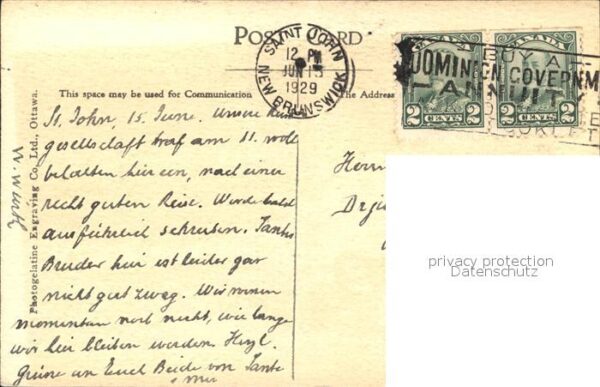 POST CARD
SAINT JOHN
12 PM
JUN 15
1929
NEW BRUNSWICK
CANADA
CANADA
BUY A
DOMINION GOVERNM
ANNUITY
2 CENTS 2
2 CENTS 2
This space may be used for Communication
The Address
Photogelatine Engraving Co., Ltd., Ottawa.
St. John, 15. June. Unsere
gesellschaft traf am 11.
hier ein, nach einer
recht guten Reise. Werde bald
ausführlich schreiben. Tante
Bruder hier ist leider gar
nicht gut zweg. Wir wissen
momentan noch nicht, wie lange
wir hier bleiben werden. Herzl.
Grüsse an Euch Beide von Tante
Herrn
privacy protection
Datenschutz